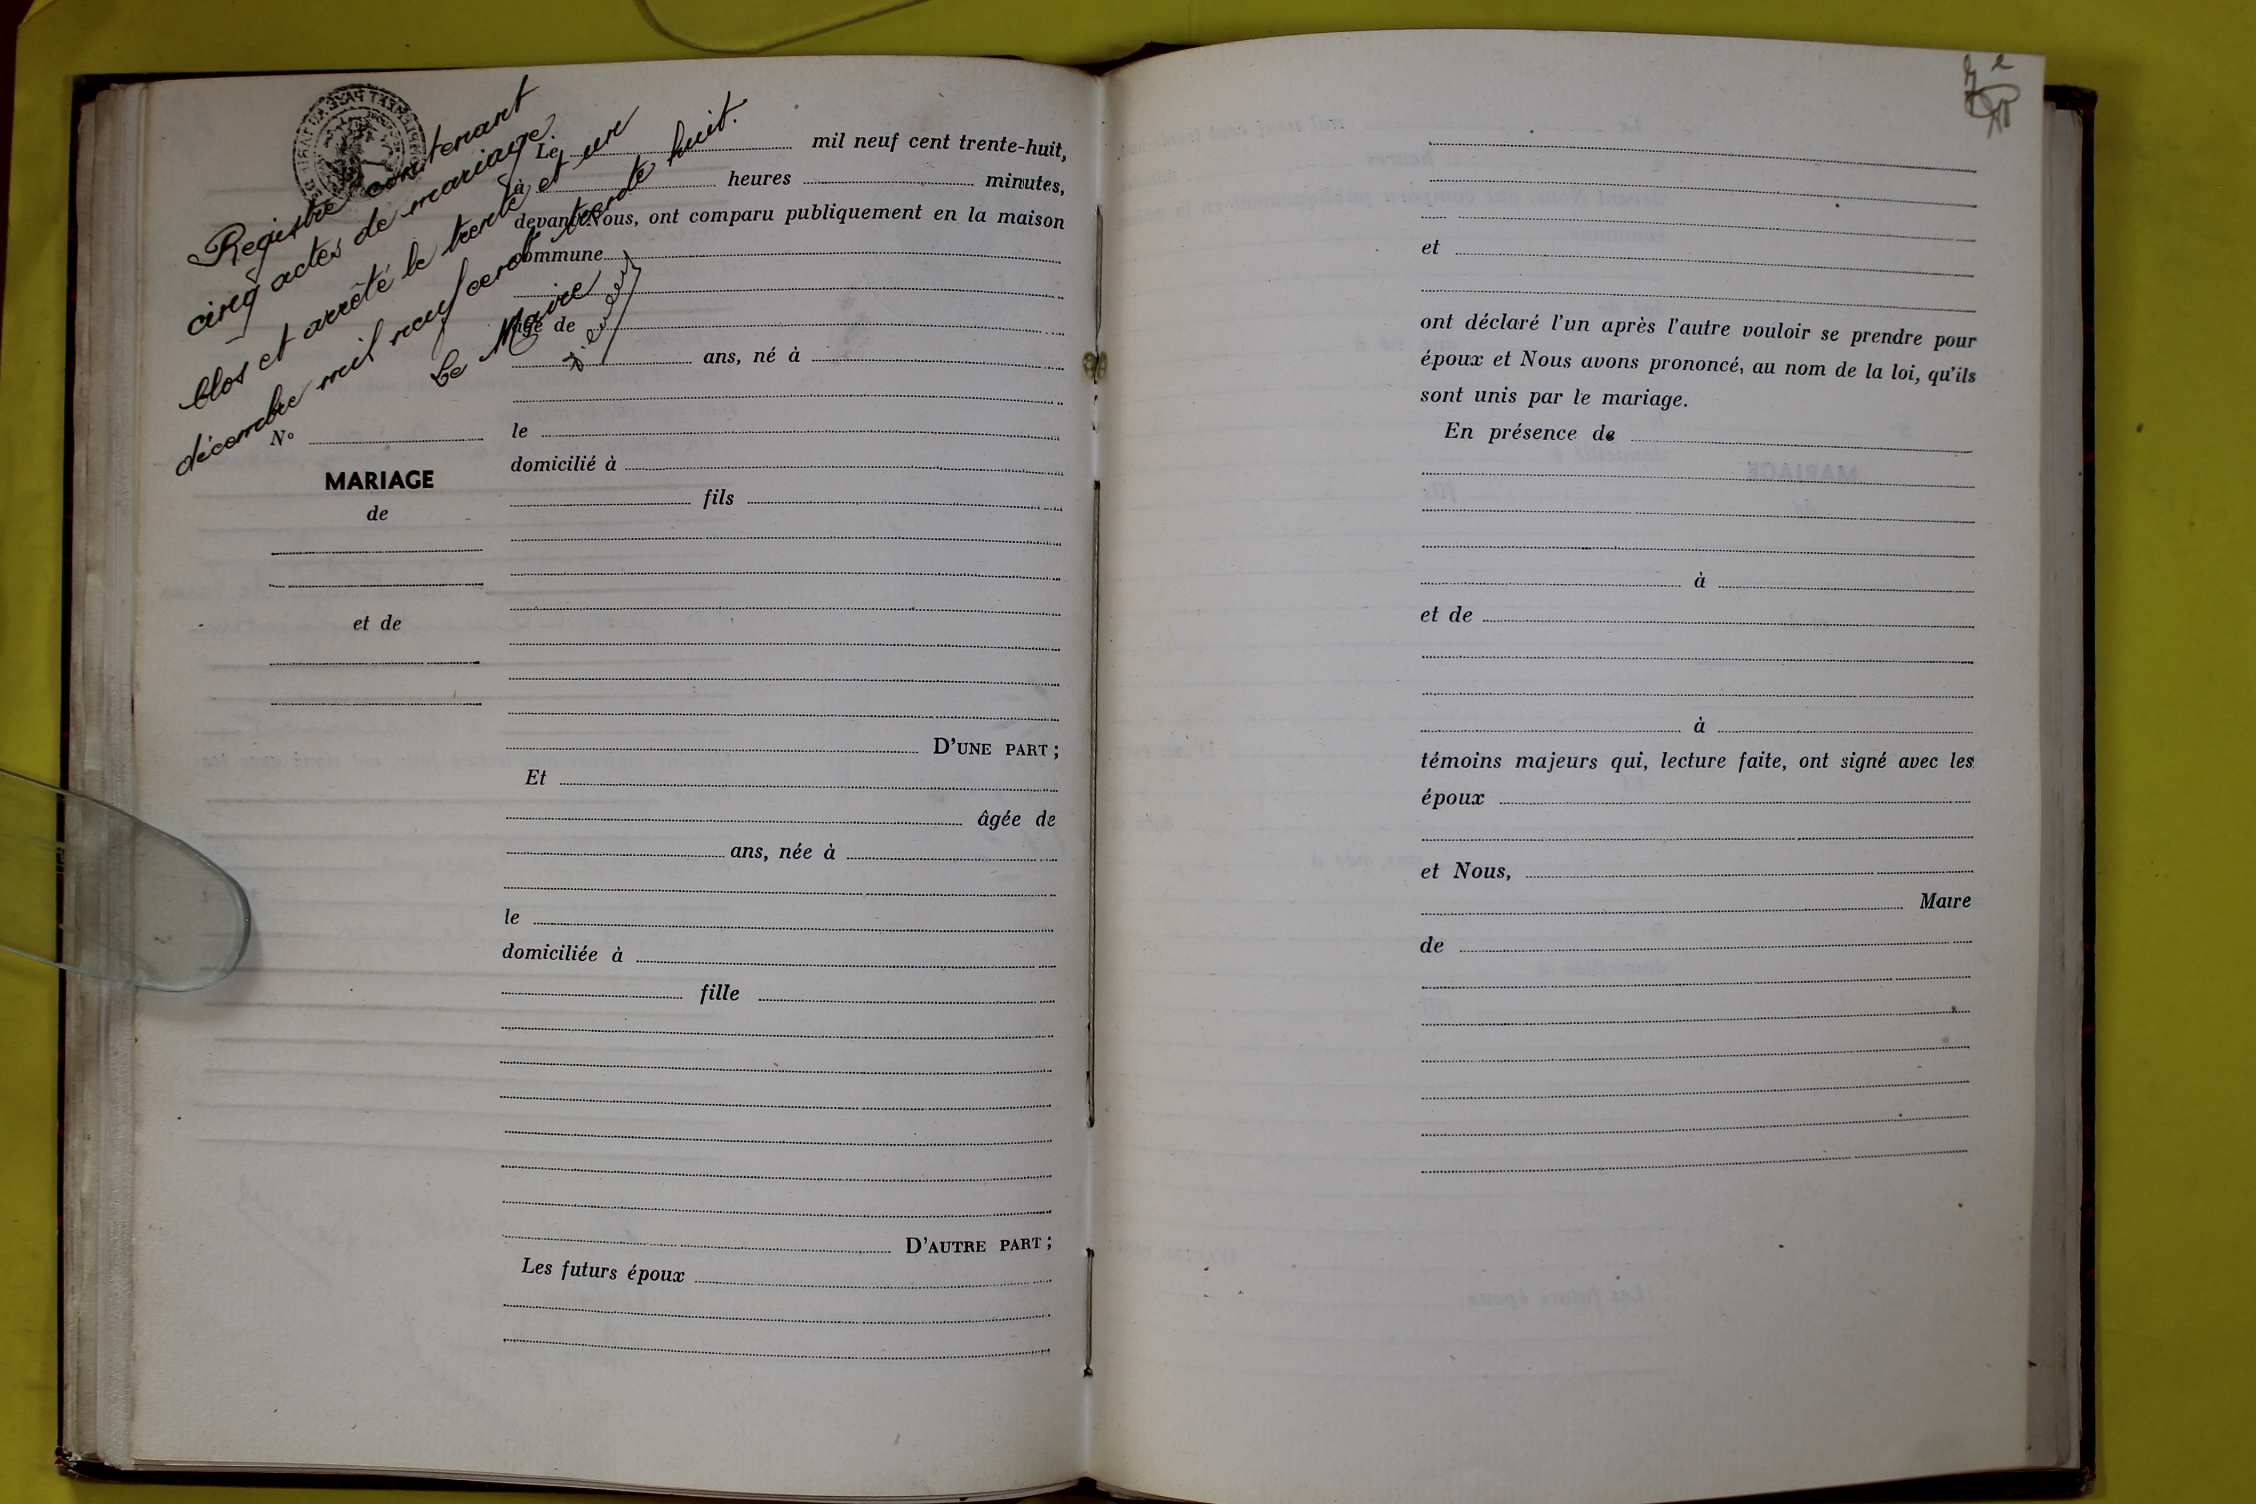 Registre contenant
cinq actes de mariage.
Clos et arrêté le trente et un
décembre mil neuf cent trente huit.
Le Maire
Le mil neuf cent trente-huit,
à heures minutes,
devant Nous, ont comparu publiquement en la maison
commune
âgé de
ans, né à
le
domicilié à
fils
D'UNE PART ;
Et
âgée de
ans, née à
le
domiciliée à
fille
D'AUTRE PART ;
Les futurs époux
N°
MARIAGE
de
et de
et
ont déclaré l'un après l'autre vouloir se prendre pour
époux et Nous avons prononcé, au nom de la loi, qu'ils
sont unis par le mariage.
En présence de
à
et de
à
témoins majeurs qui, lecture faite, ont signé avec les
époux
et Nous,
Maire
de